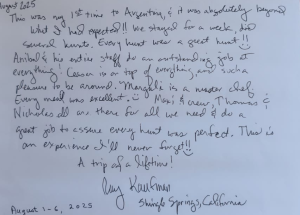 August 2025
This was my 1st time to Argentina, & it was absolutely beyond
what I had expected!! We stayed for a week, did
several hunts. Every hunt was a great hunt!!
Anibal & his entire staff do an outstanding job at
everything! Cesar is on top of everything and such a
pleasure to be around. Margali is a master chef
Every meal was excellent. Maxi & crew, Thomas &
Nicholas all are there for all we need & do a
great job to assure every hunt was perfect. This is
an experience I'll never forget!!
A trip of a lifetime!
Kaufman
August 1-6, 2025 Shingle Springs, California